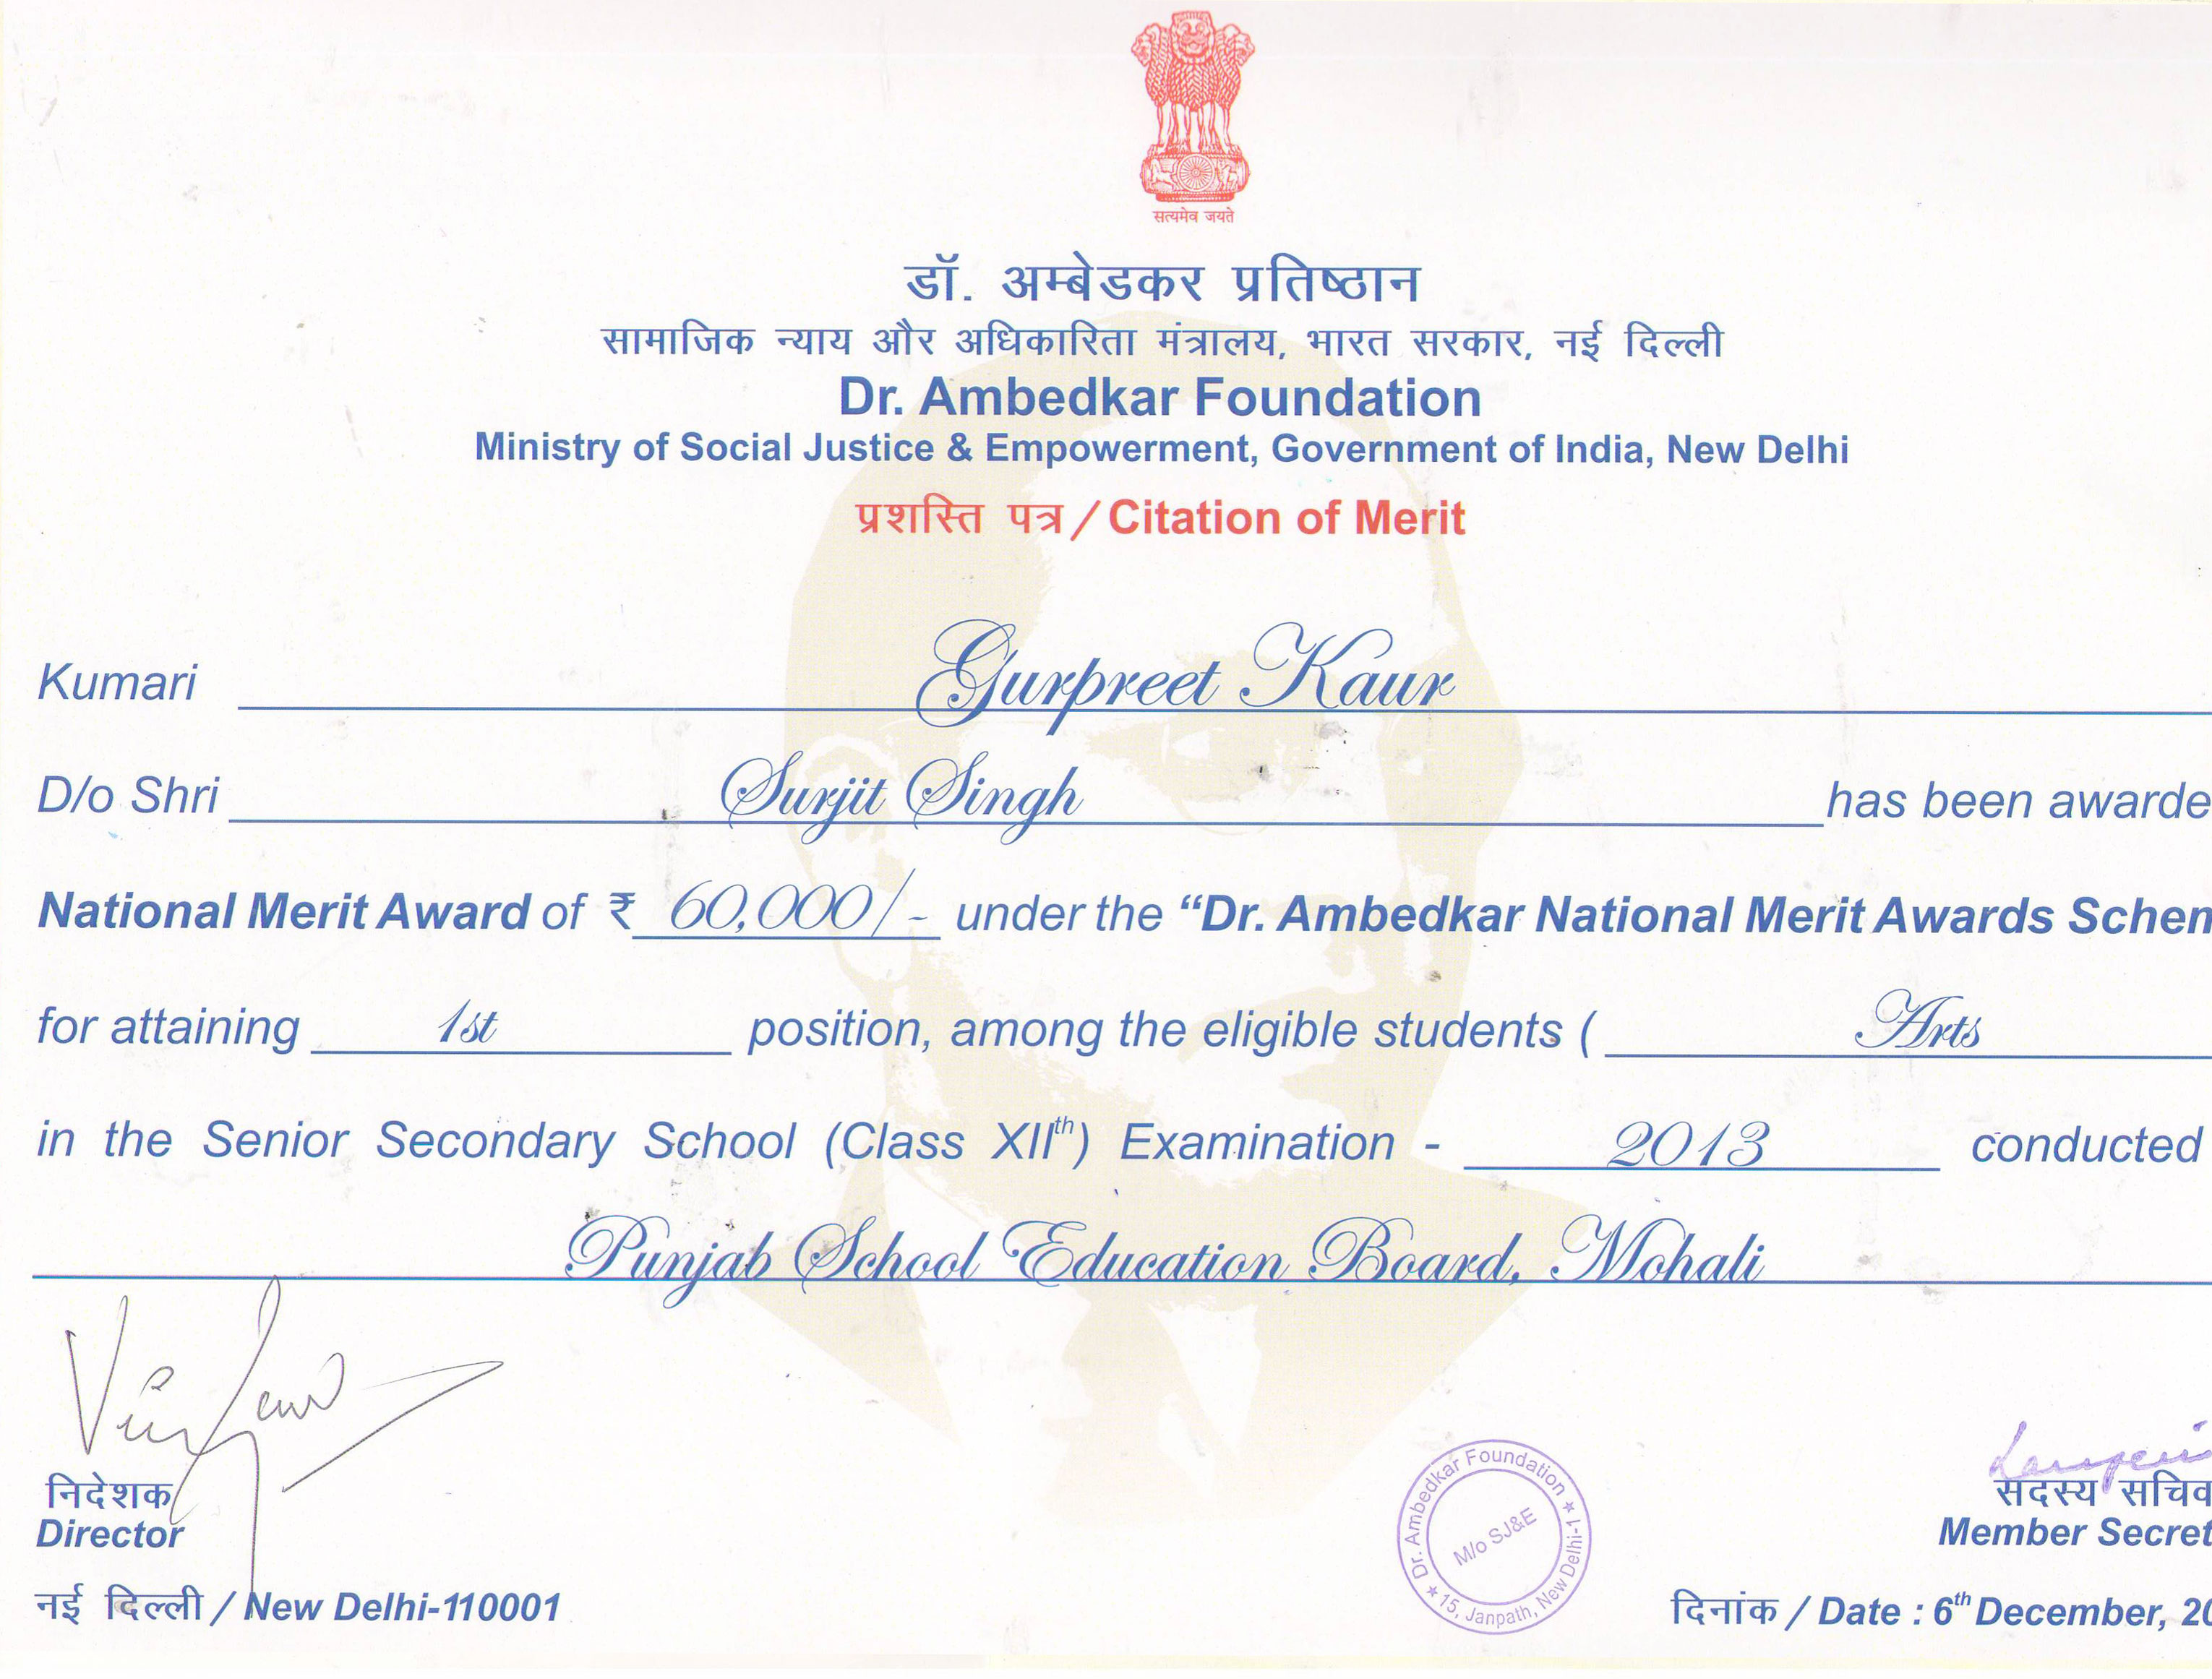 सत्यमेव जयते
डॉ. अम्बेडकर प्रतिष्ठान
सामाजिक न्याय और अधिकारिता मंत्रालय, भारत सरकार, नई दिल्ली
Dr. Ambedkar Foundation
Ministry of Social Justice & Empowerment, Government of India, New Delhi
प्रशस्ति पत्र / Citation of Merit
Kumari Gurpreet Kaur
D/o Shri Surjit Singh has been awarde
National Merit Award of ₹ 60,000/- under the “Dr. Ambedkar National Merit Awards Schem
for attaining 1st position, among the eligible students ( Arts
in the Senior Secondary School (Class XIIth) Examination - 2013 conducted
Punjab School Education Board, Mohali
निदेशक
Director
नई दिल्ली / New Delhi-110001
Dr. Ambedkar Foundation ★ 15, Janpath, New Delhi-1 ★
M/o SJ&E
सदस्य सचिव
Member Secret
दिनांक / Date : 6th December, 20